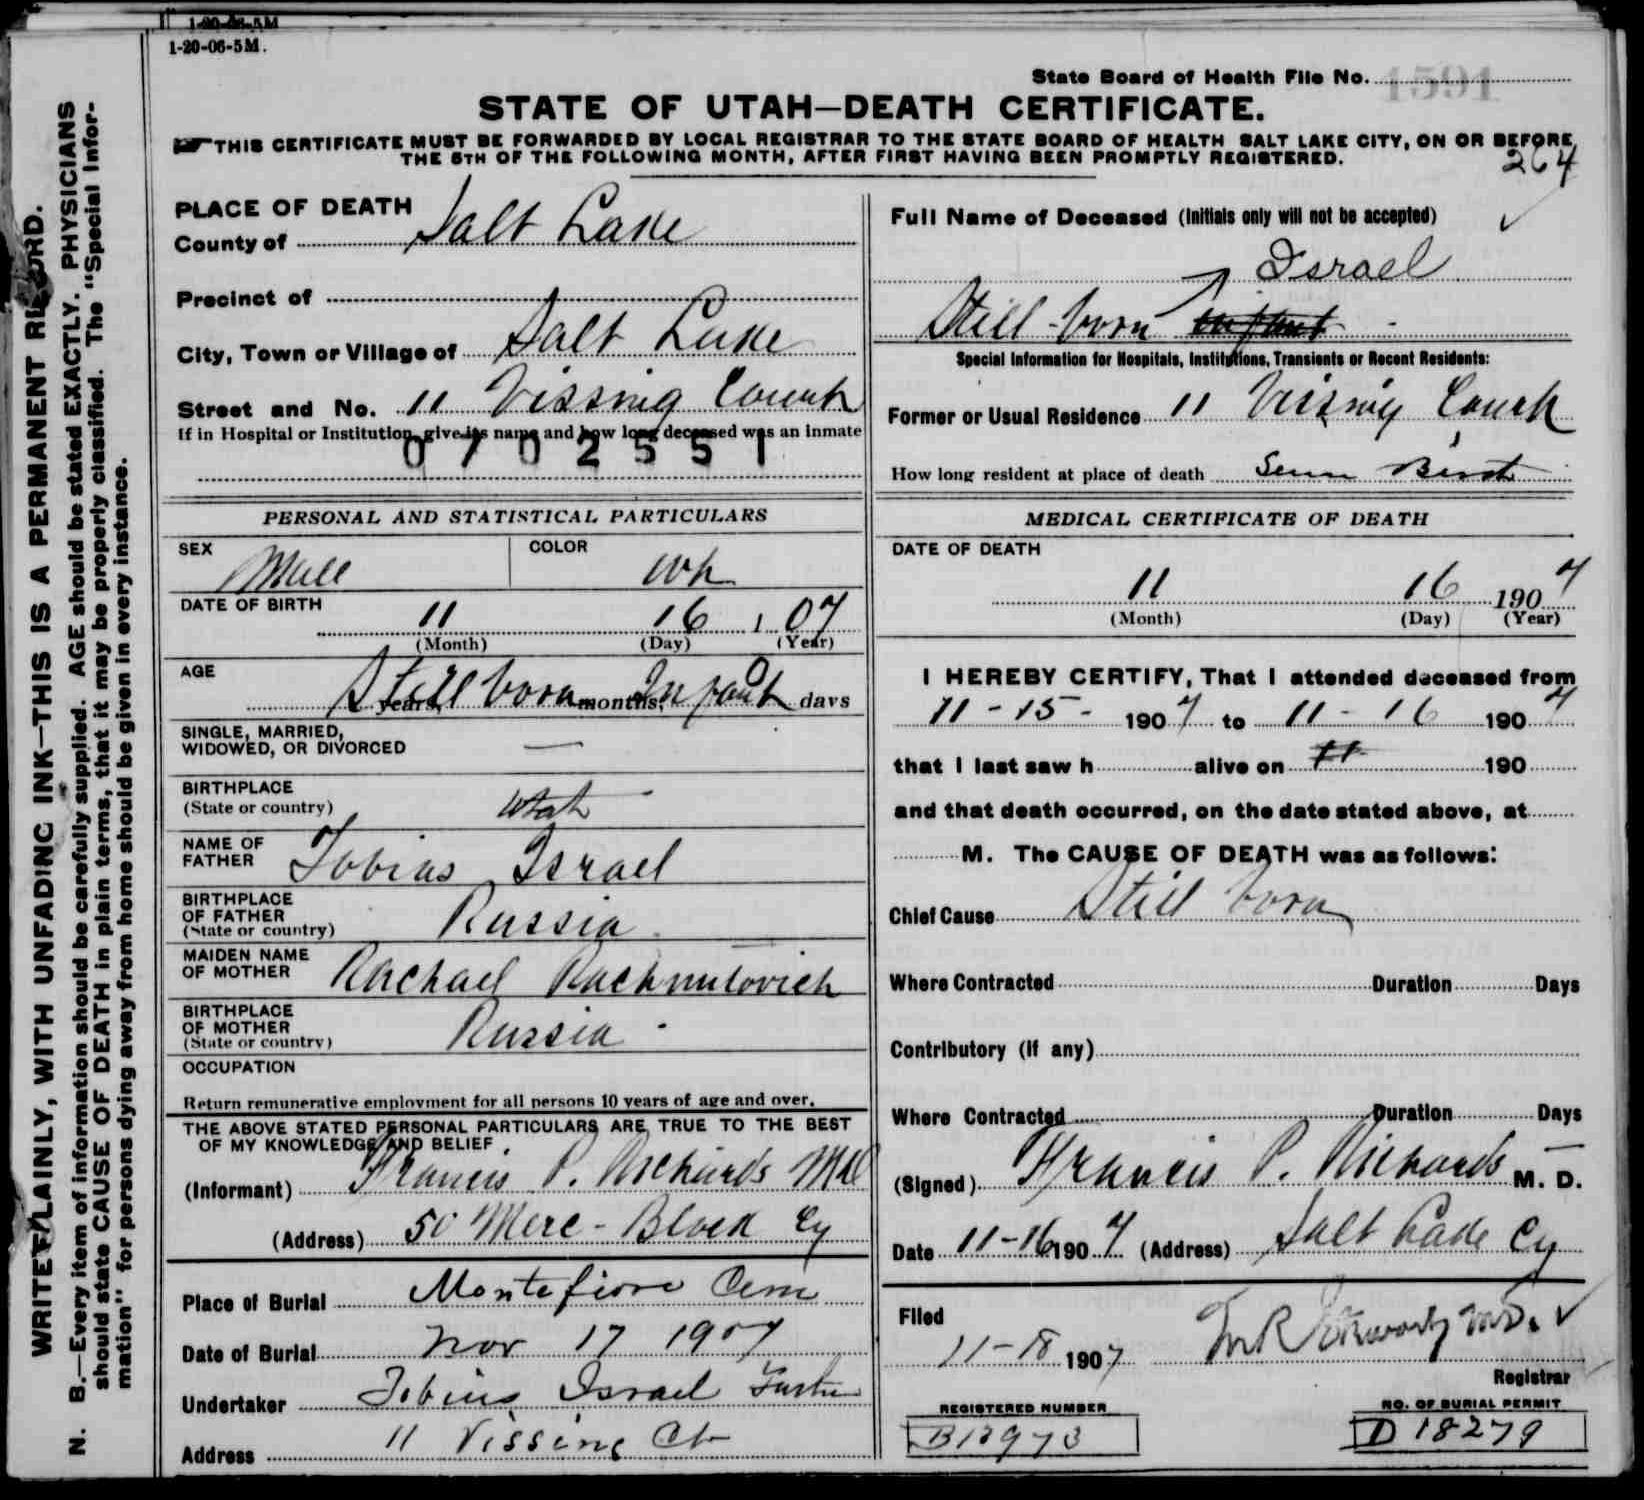 1-20-06-5M
1-20-06-5M.
State Board of Health File No. 1591
STATE OF UTAH—DEATH CERTIFICATE.
THIS CERTIFICATE MUST BE FORWARDED BY LOCAL REGISTRAR TO THE STATE BOARD OF HEALTH SALT LAKE CITY, ON OR BEFORE
THE 5TH OF THE FOLLOWING MONTH, AFTER FIRST HAVING BEEN PROMPTLY REGISTERED.
264
WRITE PLAINLY, WITH UNFADING INK—THIS IS A PERMANENT RECORD.
N. B.—Every item of information should be carefully supplied. AGE should be stated EXACTLY. PHYSICIANS
should state CAUSE OF DEATH in plain terms, that it may be properly classified. The "Special Infor-
mation" for persons dying away from home should be given in every instance.
PLACE OF DEATH
County of Salt Lake
Precinct of
City, Town or Village of Salt Lake
Street and No. 11 Vissing Court
If in Hospital or Institution, give its name and how long deceased was an inmate
0702551
PERSONAL AND STATISTICAL PARTICULARS
SEX Male COLOR Wh
DATE OF BIRTH 11 16 1 07
(Month) (Day) (Year)
AGE Still born Infant
years, months, days
SINGLE, MARRIED,
WIDOWED, OR DIVORCED —
BIRTHPLACE
(State or country) Utah
NAME OF
FATHER Tobias Israel
BIRTHPLACE
OF FATHER
(State or country) Russia
MAIDEN NAME
OF MOTHER Rachael Rachmulovich
BIRTHPLACE
OF MOTHER
(State or country) Russia
OCCUPATION
Return remunerative employment for all persons 10 years of age and over.
THE ABOVE STATED PERSONAL PARTICULARS ARE TRUE TO THE BEST
OF MY KNOWLEDGE AND BELIEF
(Informant) Francis P. Richards Md
(Address) 50 Merc - Block Cy
Place of Burial Montefiore Cem
Date of Burial Nov 17 1907
Undertaker Tobius Israel
Address 11 Vissing Ct
Full Name of Deceased (Initials only will not be accepted)
Israel
Still-born infant
Special Information for Hospitals, Institutions, Transients or Recent Residents:
Former or Usual Residence 11 Vissing Court
How long resident at place of death Birth
MEDICAL CERTIFICATE OF DEATH
DATE OF DEATH
11 16 1907
(Month) (Day) (Year)
I HEREBY CERTIFY, That I attended deceased from
11-15- 1907 to 11-16 1907
that I last saw h alive on 11 190
and that death occurred, on the date stated above, at
M. The CAUSE OF DEATH was as follows:
Chief Cause Still born
Where Contracted Duration Days
Contributory (if any)
Where Contracted Duration Days
(Signed) Francis P. Richards M. D.
Date 11-16 1907 (Address) Salt Lake Cy
Filed
11-18 1907
Registrar
REGISTERED NUMBER
B13973
NO. OF BURIAL PERMIT
D 18279